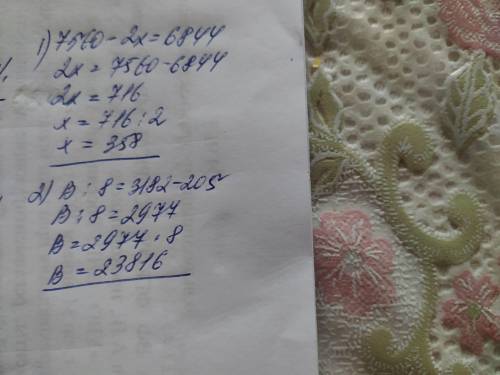 1) 7560 - 2x = 6844
2x = 7560 - 6844
2x = 716
x = 716 : 2
x = 358
2) В : 8 = 3182 - 205
В : 8 = 2977
В = 2977 · 8
В = 23816